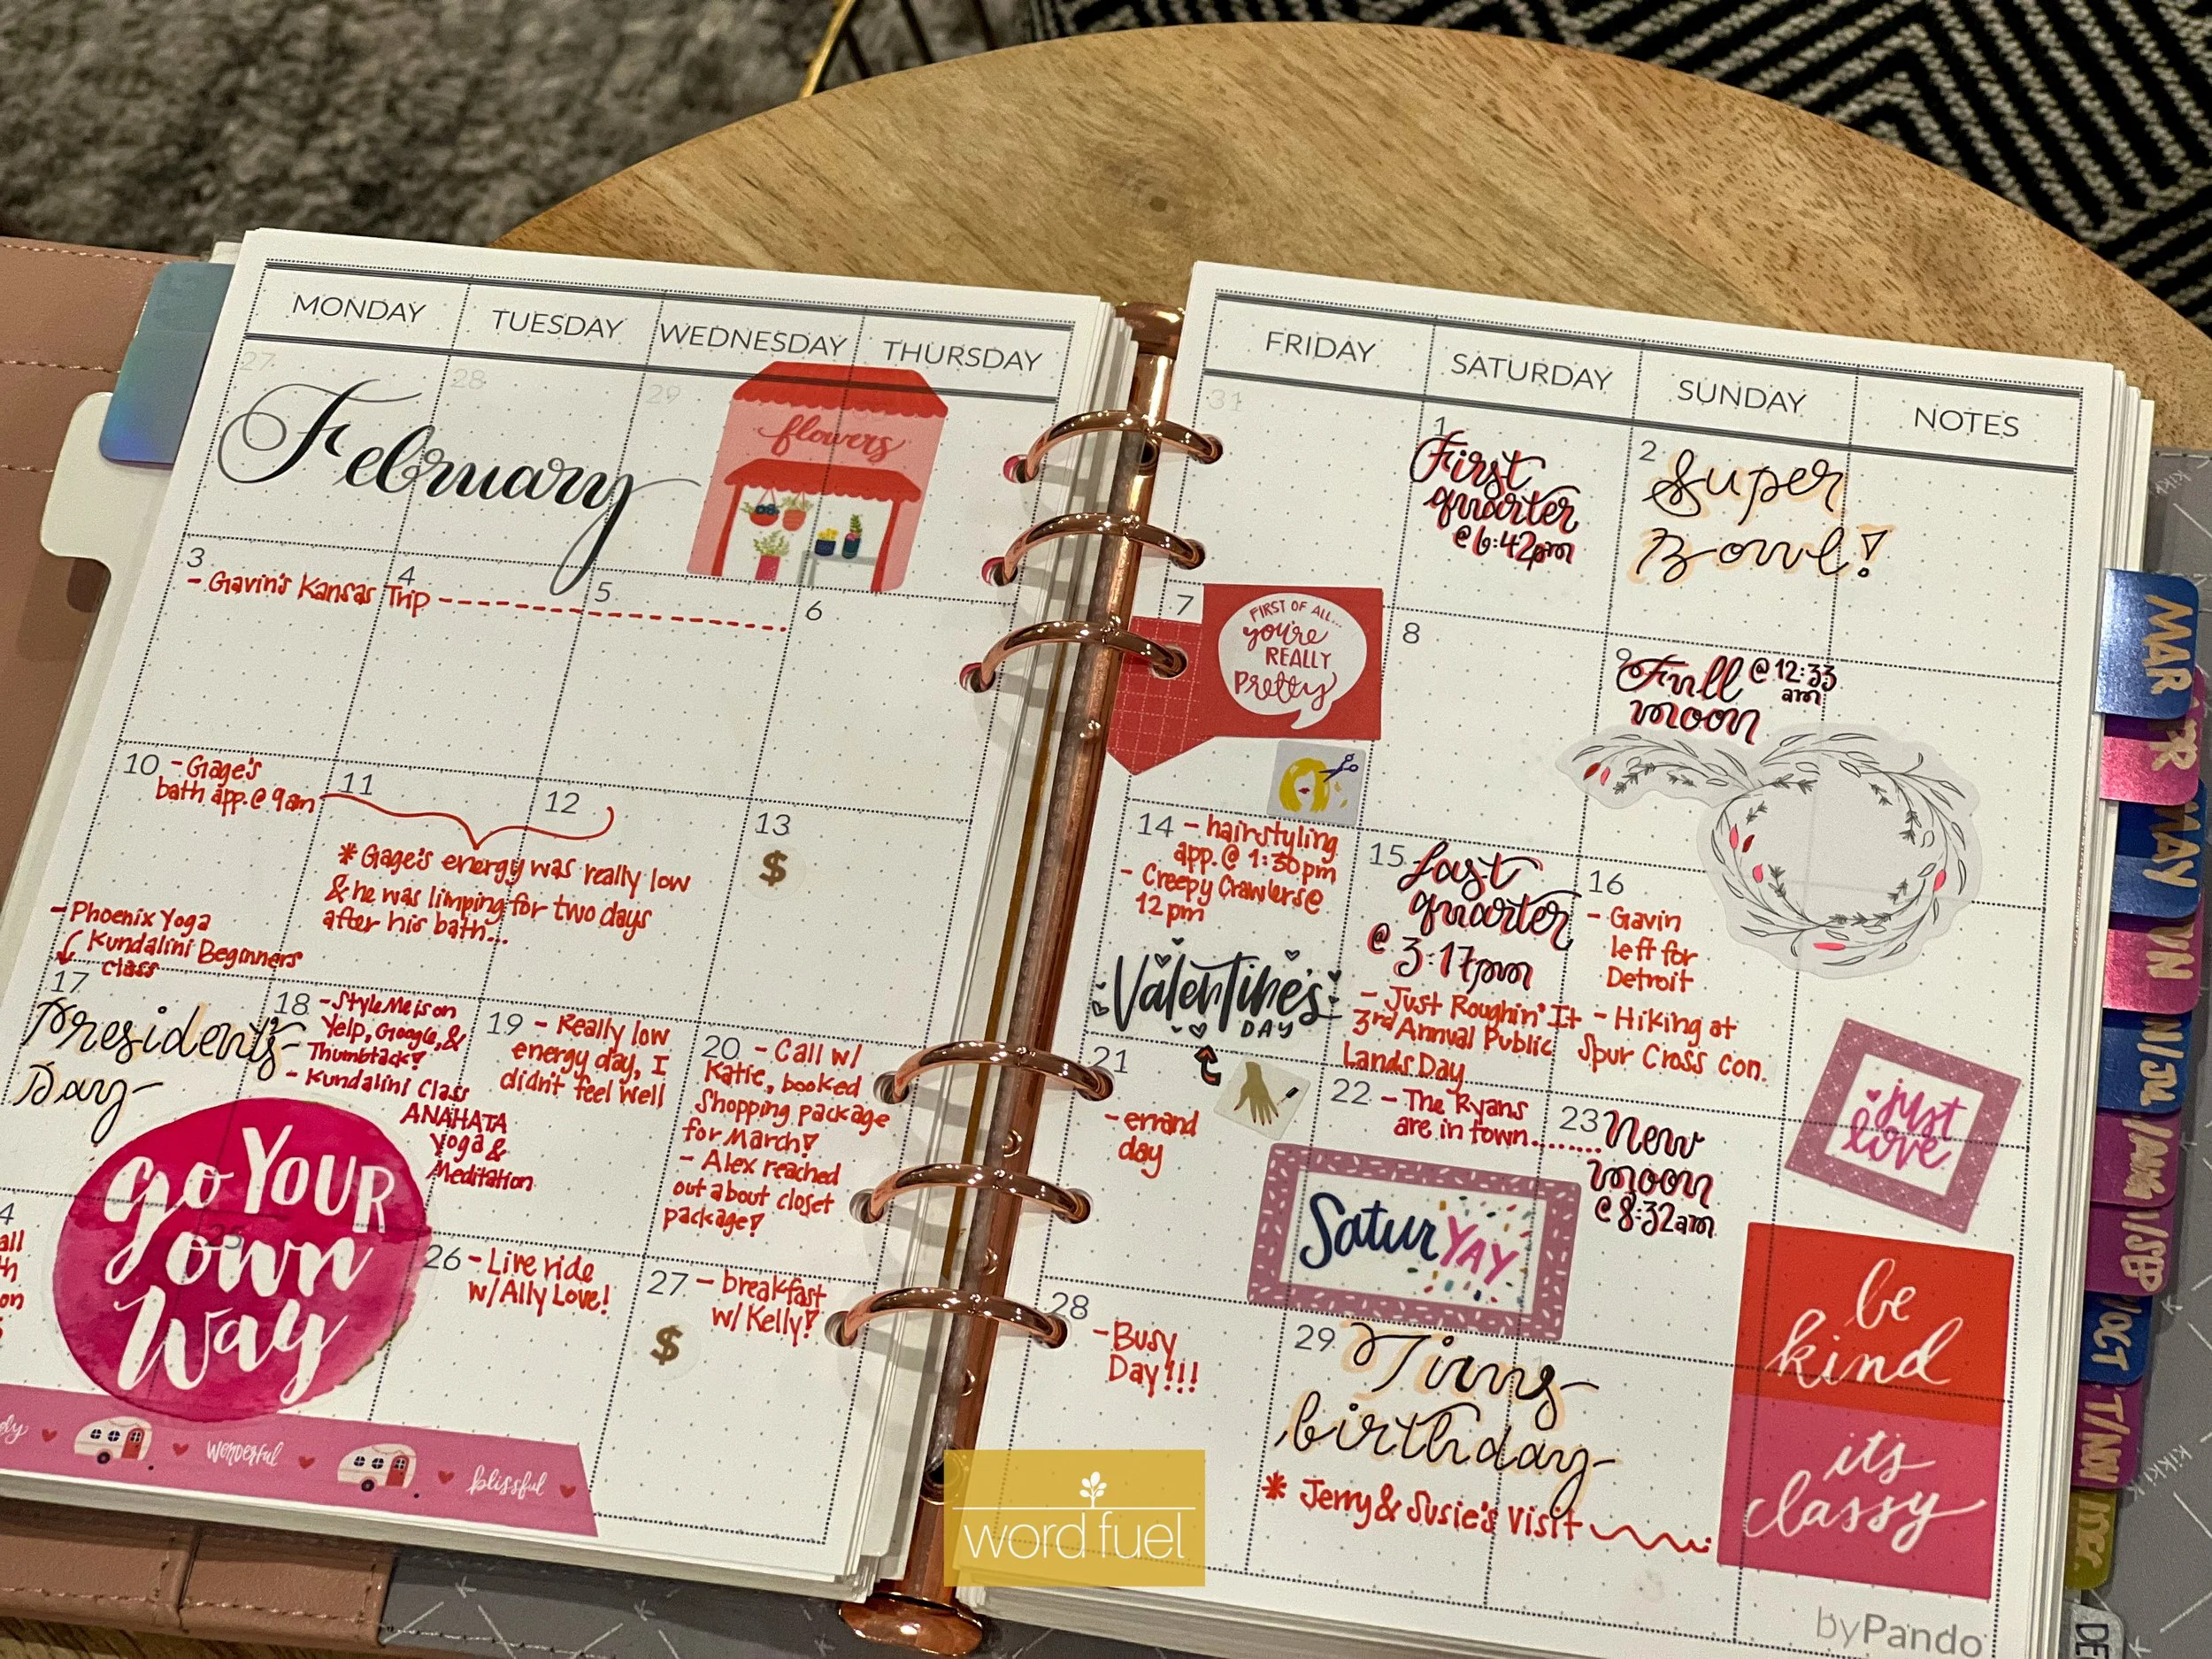 MONDAY
TUESDAY
WEDNESDAY
THURSDAY
27
28
29
February
flowers
3
- Gavin's Kansas Trip
4
5
6
10 - Gage's
bath app. @ 9am
11
12
* Gage's energy was really low
& he was limping for two days
after his bath...
13
$
- Phoenix Yoga
Kundalini Beginners
class
17
President's
Day
18 - StyleMe is on
Yelp, Google, &
Thumbtack!
- Kundalini Class
ANAHATA
Yoga &
Meditation
19 - Really low
energy day, I
didn't feel well
20 - Call w/
Katie, booked
Shopping package
for March!
- Alex reached
out about closet
package!
4
all
on
25
GO YOUR
own
way
26 - Live ride
w/ Ally Love!
27 - breakfast
w/ Kelly!
$
wonderful
blissful
FRIDAY
SATURDAY
SUNDAY
NOTES
31
1
First
quarter
@ 6:42pm
2
Super
Bowl!
7
FIRST OF ALL...
you're
REALLY
Pretty
8
9
Full @ 12:33
am
moon
14 - hairstyling
app. @ 1:30pm
- Creepy Crawlers @
12 pm
Valentine's
DAY
15
Last
quarter
@ 3:17pm
- Just Roughin' It
3rd Annual Public
Lands Day
16
- Gavin
left for
Detroit
- Hiking at
Spur Cross Con.
just
love
21
- errand
day
22 - The Ryans
are in town......
SaturYAY
23 New
moon
@ 8:32am
28
- Busy
Day!!!
29
Tims
birthday
* Jerry & Susie's visit
1
be
kind
it's
classy
byPando
MAR
MAY
OCT
DEC
word fuel